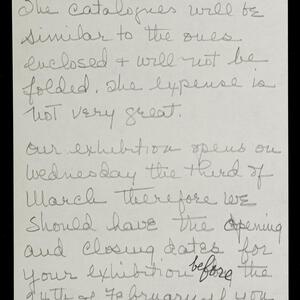 The catalogues will be
similar to the ones
enclosed + will not be
folded. The expense is
not very great.
Our exhibition opens on
Wednesday the third of
March therefore we
should have the opening
and closing dates for
your exhibition before the
24th of February if you